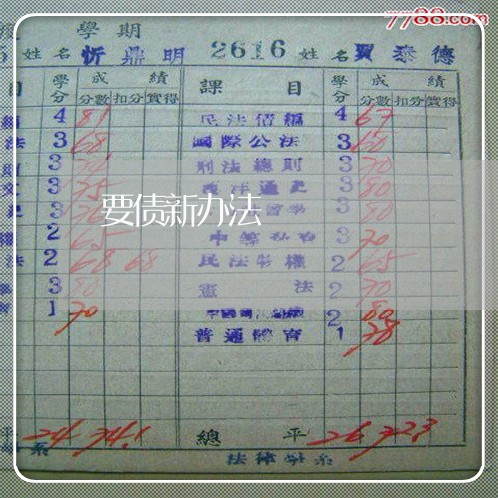 7788.com
學期
姓名 忻鼎明 2616 姓名 賈泰德
目 學分 成績 課目 學分 成績
分數 扣分 實得 分數 扣分 實得
4 81 民法債編 4 67
法 3 68 國際公法 3 60
3 刑法總則 3 70
3 75 3 80
3 3 80
要债新办法
權 2 65 3 70
法 2 68 68 民法物權 2 65
3 80 憲法 2 70
1 70 2 80
普通體育 1 78
平 24 74.1 總平 26 72.3
系 法律學系